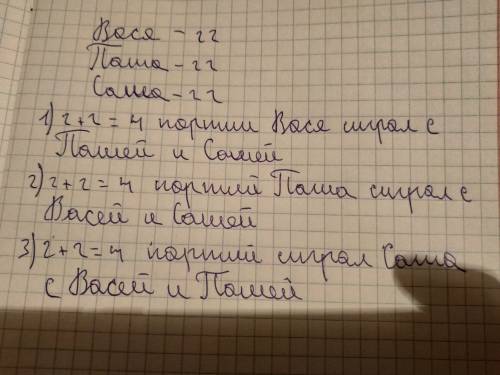 Вася - 22
Паша - 22
Саша - 22
1) 2+2=4 партии Вася играл с
Пашей и Сашей
2) 2+2=4 партий Паша играл с
Васей и Сашей
3) 2+2=4 партий играл Саша
с Васей и Пашей